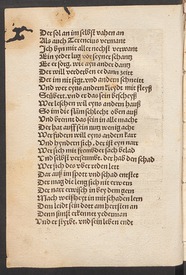 Der sol an im selbst vahen an
Als auch Terencius vermant
Ich byn mir aller nechst verwant
Ein yeder lug vor seynes schantz
Ee er sorg, wie ayn ander dantz
Der will verderben er dann zeit
Der im nit segt, und andern schneit
Und wer eyns andern kleydt mit fleyß
Seübert, und er das sein bescheyß
Wer leschen will eyns andern hauß
So im die flam schlecht oben auß
Und brennt das sein in aller macht
Der hat auff sein nutz wenig acht
Wer fürdern will eyns andern karr
Und hyndern sich, der ist eyn narr
Wer sich mit frembder sach belad
Und selbst versaumbt, der hab den schad
Wer sich des über reden lert
Das auf im spott und schad entstet
Der mag die leng sich nit erwern
Der narr erwisch in bey dem gern
Mach weißheyt in mit schaden lern
Dem leidt sein dot am hertsten an
Denn sunst erkennet yederman
Und er styrbt, und sein leben endt